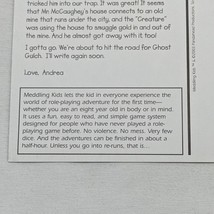 tricked him into our trap. It was great! It seems
that Mr McGaughey's house connects to an old
mine that runs under the city, and the "Creature"
was using the house to smuggle gold in and out
of the mine. And he almost got away with it, too!
I gotta go. We're about to hit the road for Ghost
Gulch. I'll write again soon.
Love, Andrea
Meddling Kids lets the kid in everyone experience the
world of role-playing adventure for the first time—
whether you are an eight year old in body or in mind.
It uses a fun, easy to read, and simple game system
designed for people who have never played a role-
playing game before. No violence. No mess. Very few
dice. And the adventures can be finished in about a
half-hour. Unless you go into re-runs, that is...